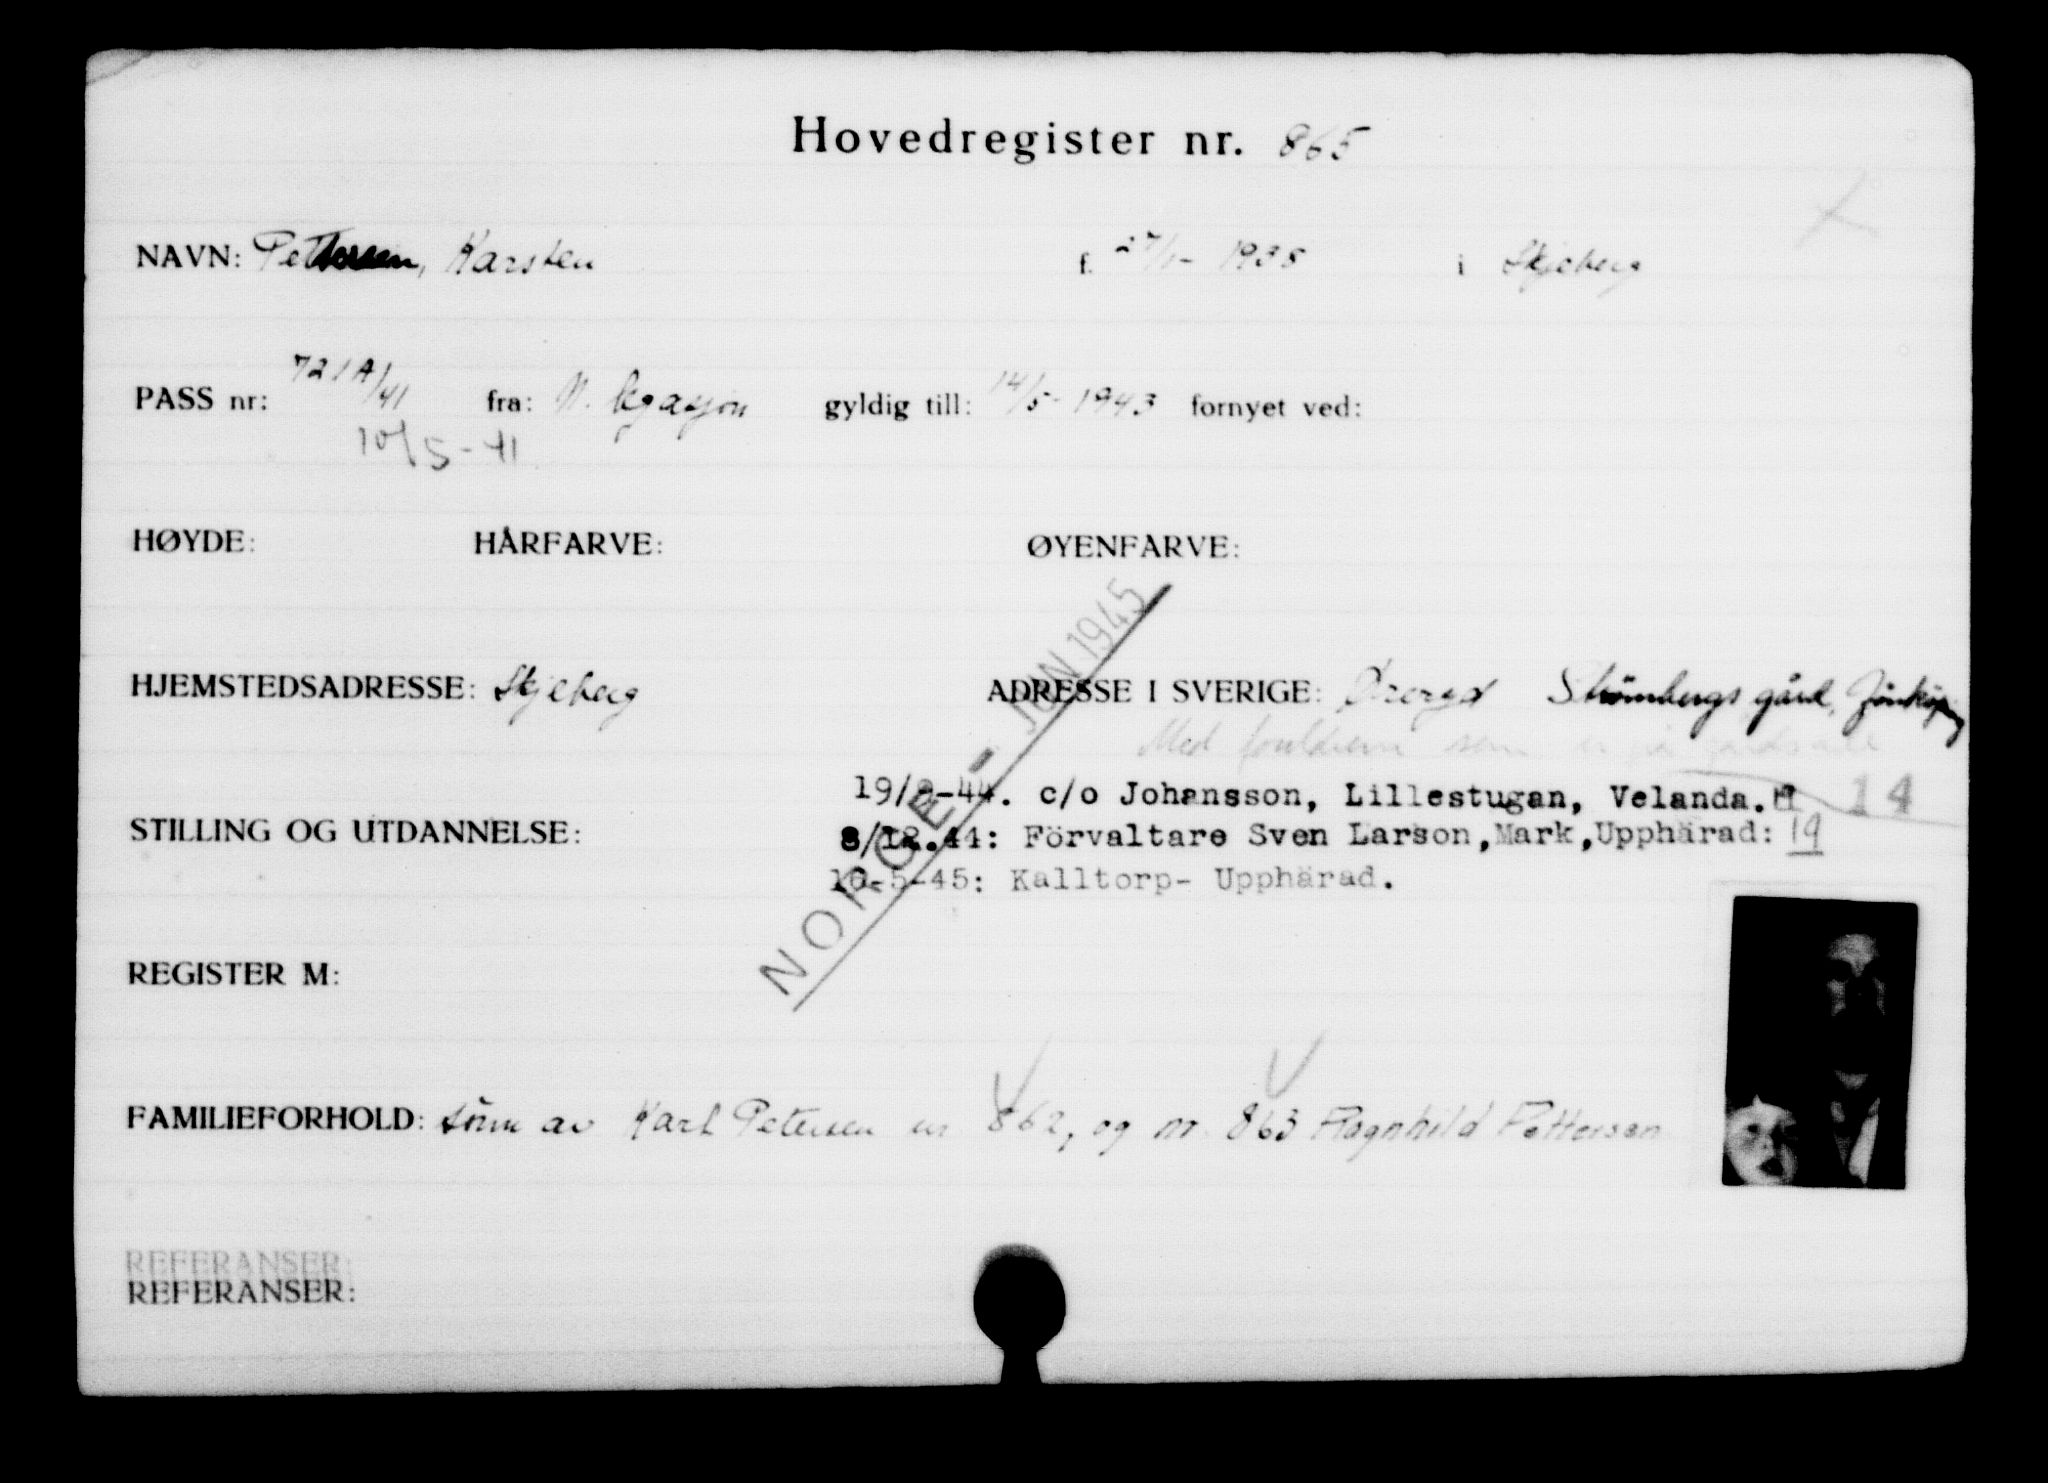 Hovedregister nr. 865
NAVN: Pettersen, Karsten f. 27/1- 1938 i Skjeberg
PASS nr: 721A/41 fra: N. legasjon gyldig till: 14/5- 1943 fornyet ved:
10/5-41
HØYDE: HÅRFARVE: ØYENFARVE:
HJEMSTEDSADRESSE: Skjeberg ADRESSE I SVERIGE: Öreryd Strömbergs gård, Jönköping
Med foreldrene som er på
19/9-44. c/o Johansson, Lillestugan, Velanda. 14
STILLING OG UTDANNELSE: 8/12.44: Förvaltare Sven Larson, Mark, Upphärad: 19
10-5-45: Kalltorp- Upphärad.
NORGE - JUN 1945
REGISTER M:
FAMILIEFORHOLD: sönn av Karl Petersen nr 862, og nr. 863 Ragnhild Pettersen
REFERANSER:
REFERANSER: